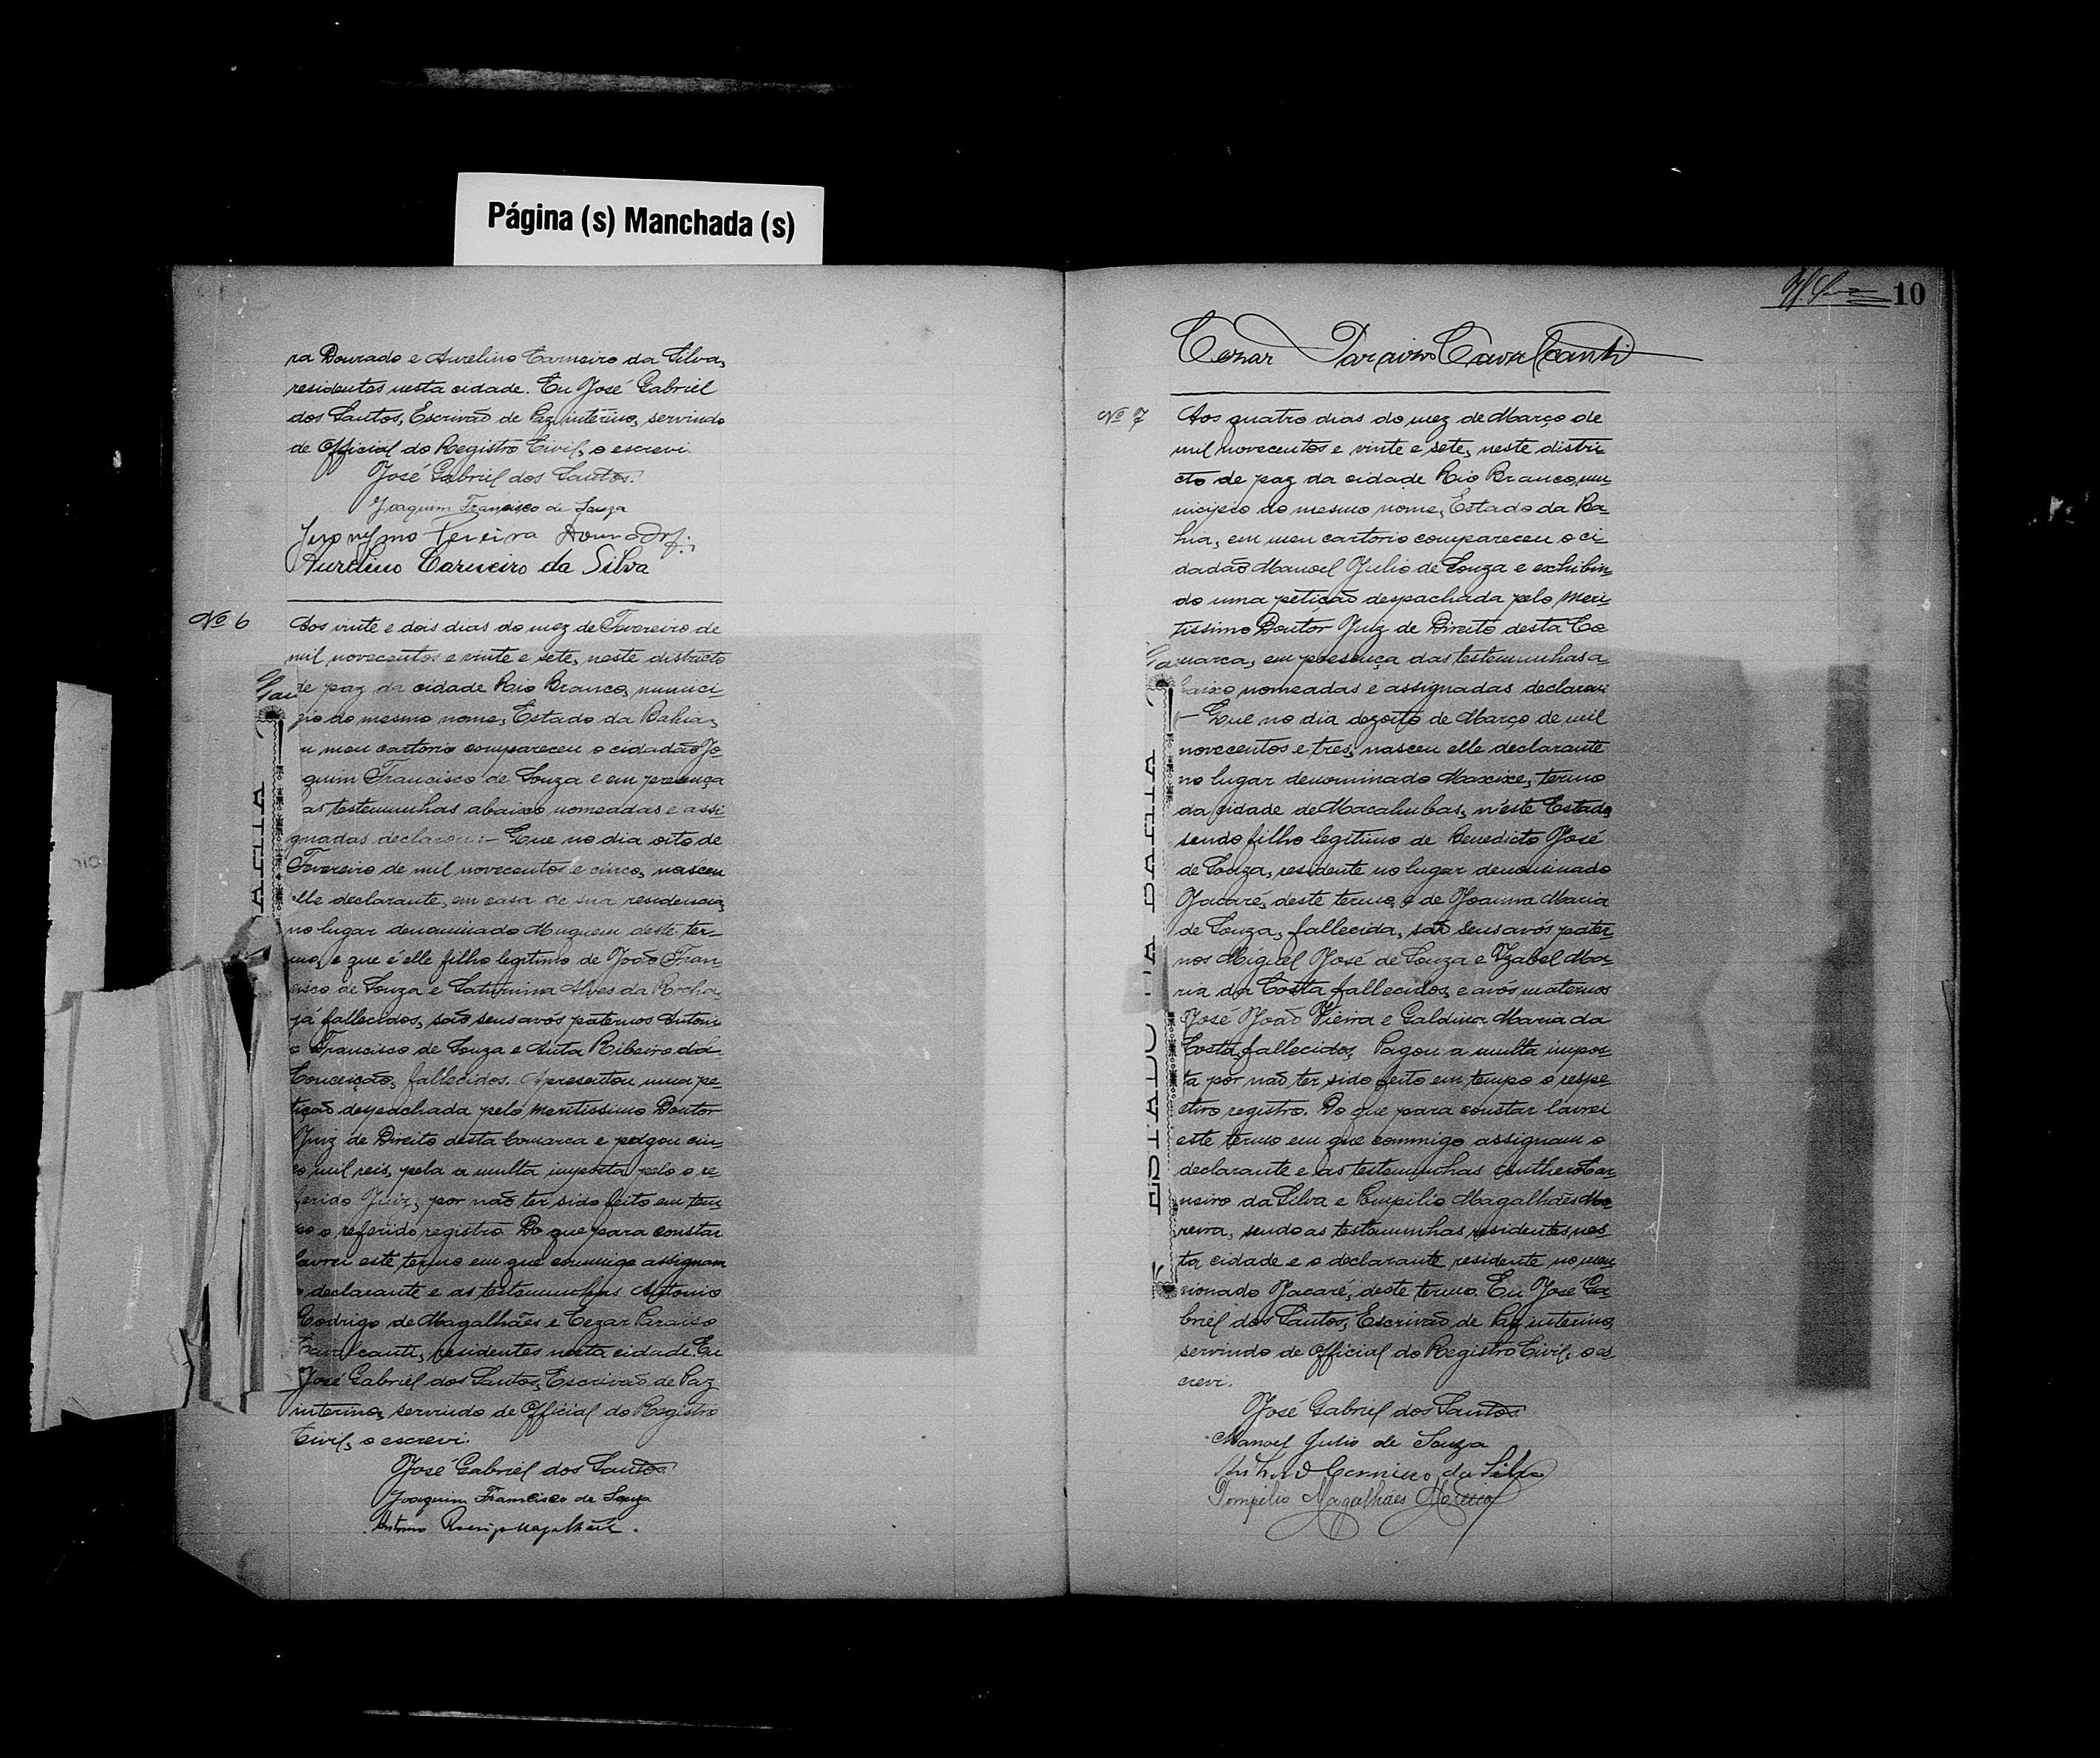 Página (s) Manchada (s)
ra Dourado e Aurelino Carneiro da Silva,
residentes nesta cidade. Eu José Gabriel
dos Santos, Escrivão de Paz interino, servindo
de Official do Registro Civil, o escrevi.
José Gabriel dos Santos.
Joaquim Francisco de Souza
Jeronymo Pereira Dourado
Aurelino Carneiro da Silva
Nº 6
Aos vinte e dois dias do mez de Fevereiro de
mil novecentos e vinte e sete, neste districto
de paz da cidade Rio Branco, munici-
pio do mesmo nome, Estado da Bahia,
m meu cartorio compareceu o cidadão Jo-
quim Francisco de Souza e em presença
as testemunhas abaixo nomeadas e assi-
gnadas declarou:- Que no dia oito de
Fevereiro de mil novecentos e cinco, nasceu
elle declarante, em casa de sua residencia,
no lugar denominado Muquem deste ter-
mo, e que é elle filho legitimo de João Fran-
cisco de Souza e Saturnina Alves da Rocha,
já fallecidos, são seus avós paternos Antoni-
o Francisco de Souza e Anta Ribeiro da
Conceição, fallecidos. Apresentou uma pe-
tição despachada pelo Meritissimo Doutor
Juiz de Direito desta Comarca e pagou cin-
co mil reis, pela a multa imposta pelo o re-
ferido Juiz, por não ter sido feito em tem
po o referido registro. Do que para constar
lavrei este termo em que commigo assignam
o declarante e as testemunhas Antonio
Rodrigo de Magalhães e Cezar Paraiso
Cavalcanti, residentes nesta cidade. Eu
José Gabriel dos Santos, Escrivão de Paz
interino, servindo de Official do Registro
Civil, o escrevi.
José Gabriel dos Santos
Joaquim Francisco de Souza
Antonio Rodrigo Magalhães.
10
Cezar Paraizo Cavalcanti
Nº 7
Aos quatro dias do mez de Março de
mil novecentos e vinte e sete, neste distri-
cto de paz da cidade Rio Branco, mu-
nicipio do mesmo nome, Estado da Ba-
hia, em meu cartorio compareceu o ci-
dadão Manoel Julio de Souza e exhibin-
do uma petição despachada pelo Meri-
tissimo Doutor Juiz de Direito desta Co-
marca, em presença das testemunhas a-
baixo nomeadas e assignadas declarou:
- Que no dia dezoito de Março de mil
novecentos e tres, nasceu elle declarante
no lugar denominado Maxixe, termo
da cidade de Macahubas, n'este Estado,
sendo filho legitimo de Benedicto José
de Souza, residente no lugar denominado
Jacaré, deste termo, e de Joanna Maria
de Souza, fallecida, são seus avós pater-
nos Miguel José de Souza e Izabel Ma-
ria da Costa fallecidos, e avós maternos
José João Vieira e Galdina Maria da
Costa, fallecidos. Pagou a multa impos-
ta por não ter sido feito em tempo o respe-
ctivo registro. Do que para constar lavrei
este termo em que commigo assignam o
declarante e as testemunhas Anthero Car-
neiro da Silva e Pompilio Magalhães Mo-
reira, sendo as testemunhas residentes nes-
ta cidade e o declarante residente no men-
cionado Jacaré, deste termo. Eu José Ga-
briel dos Santos, Escrivão de Paz interino,
servindo de Official do Registro Civil, o es-
crevi.
ESTADO DA BAHIA
José Gabriel dos Santos
Manoel Julio de Souza
Anthero Carneiro da Silva
Pompilio Magalhães Moreira